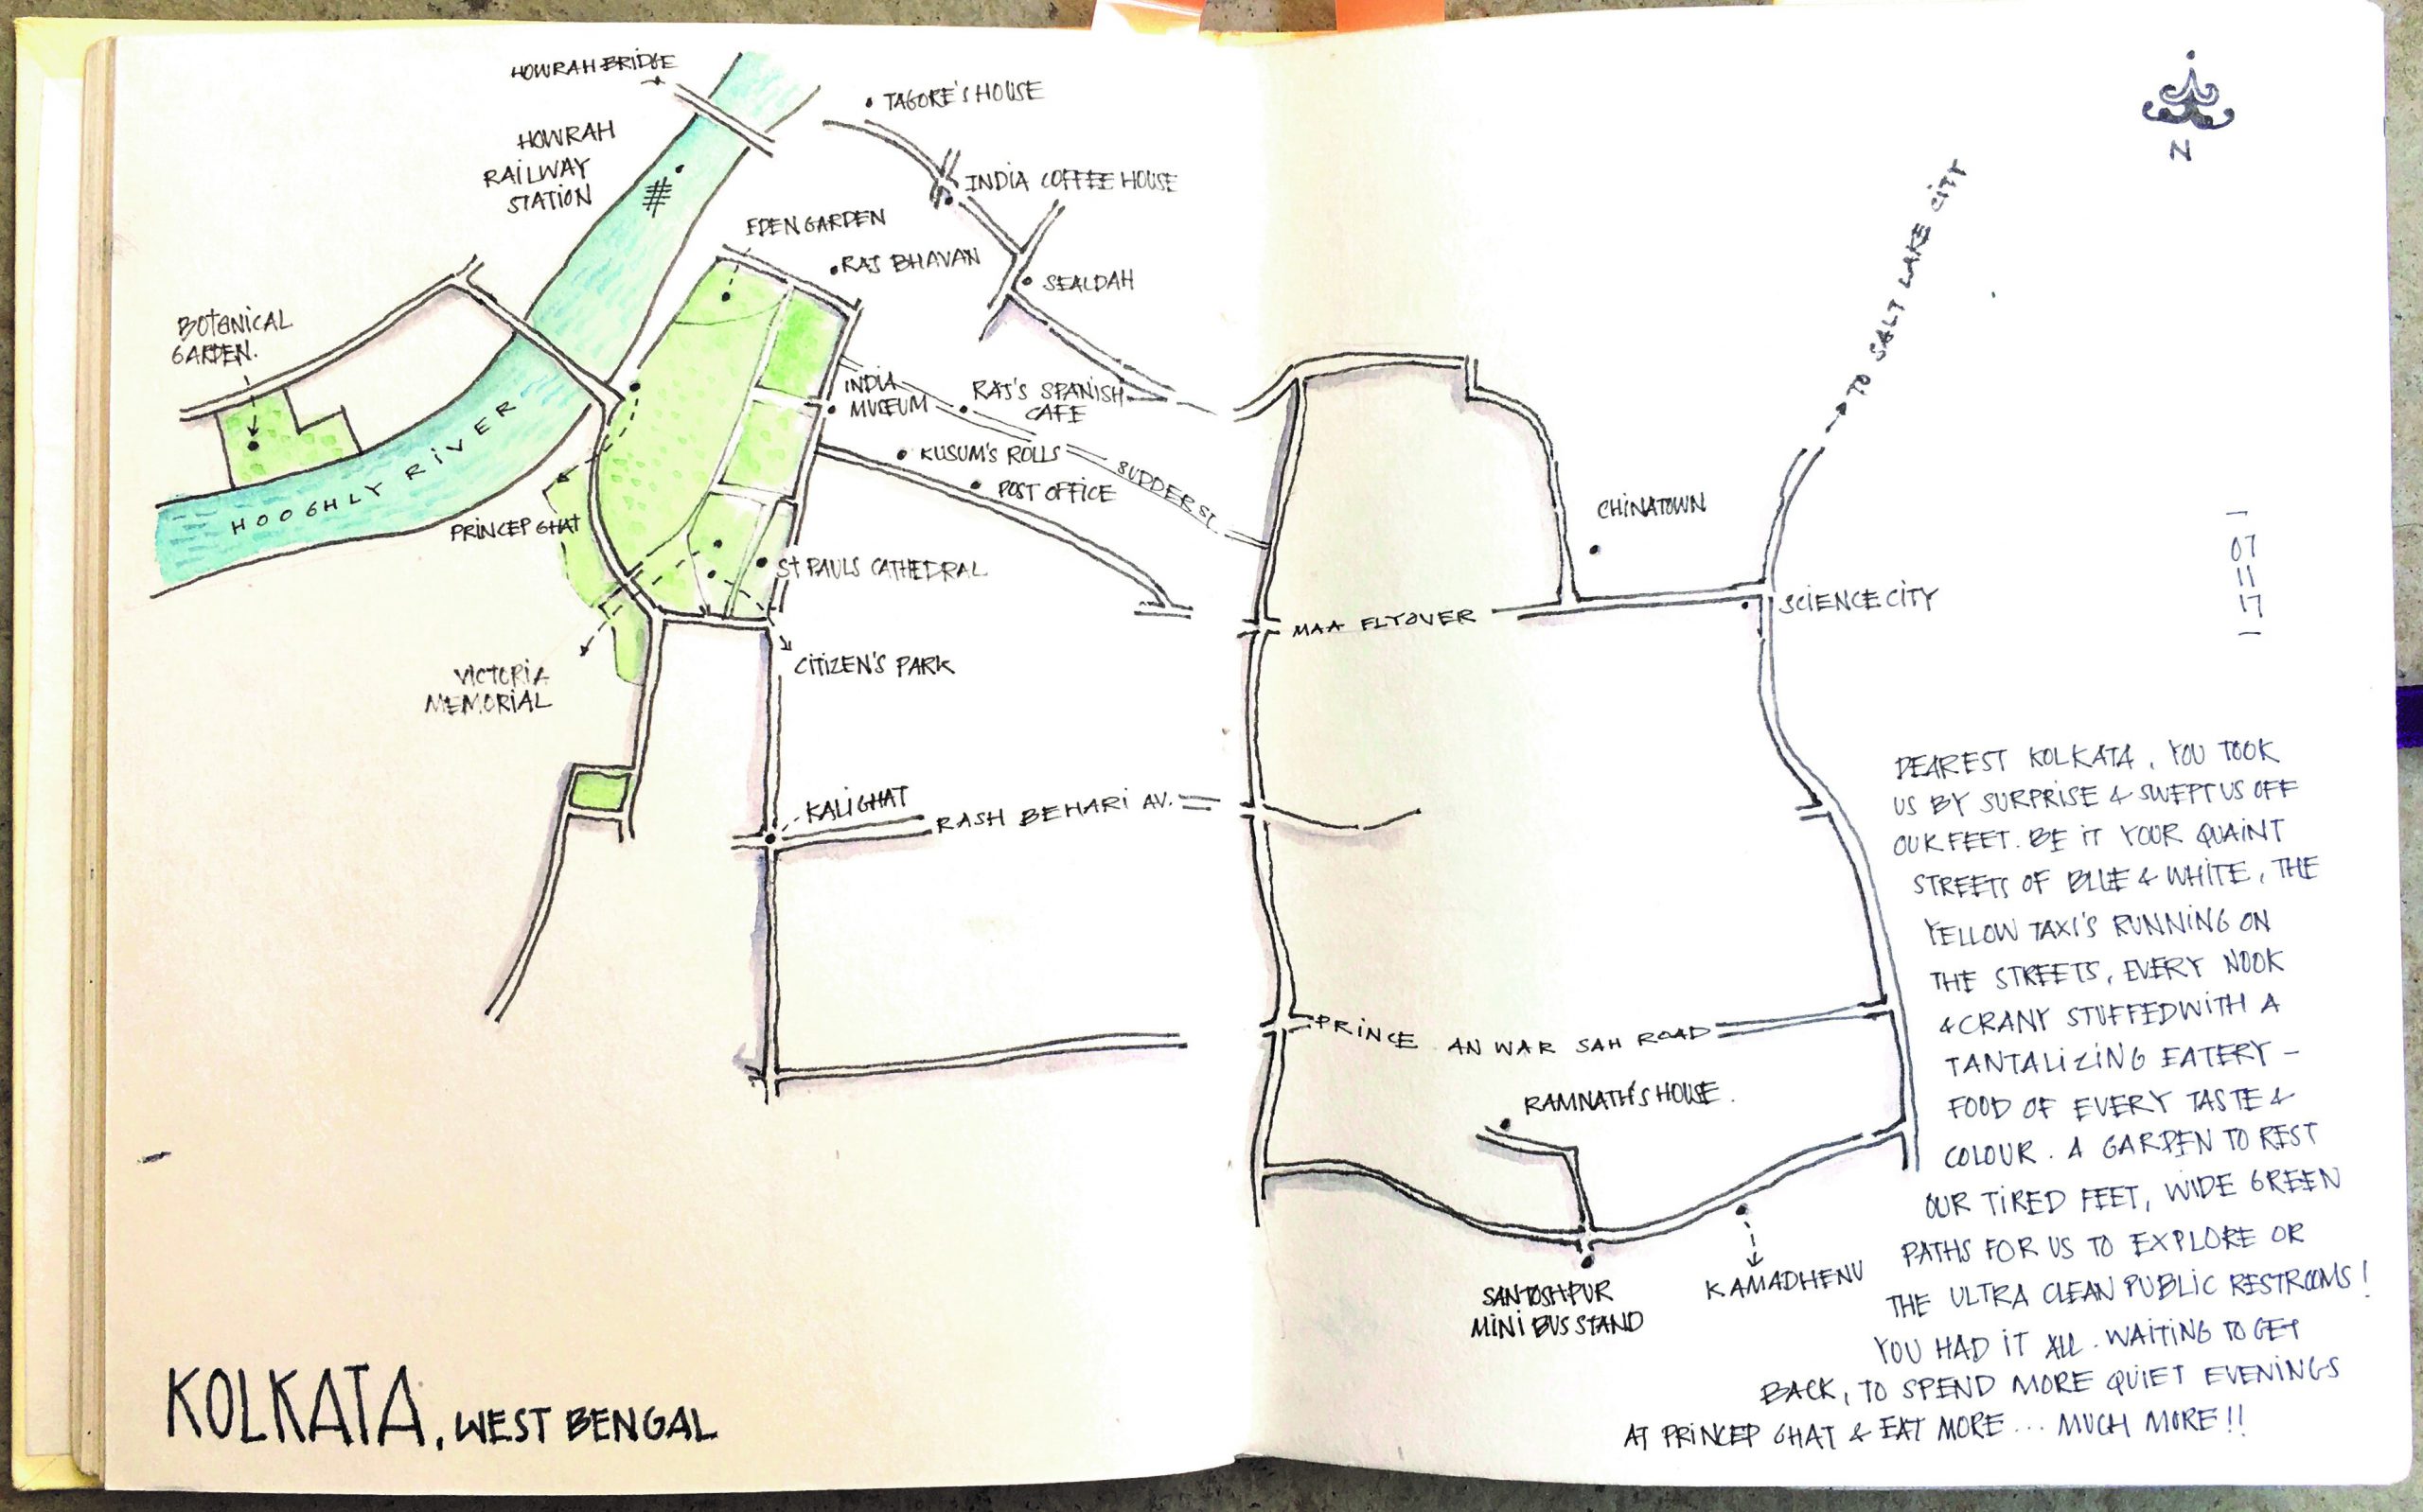 HOWRAH BRIDGE
TAGORE'S HOUSE
HOWRAH
RAILWAY
STATION
INDIA COFFEE HOUSE
EDEN GARDEN
RAJ BHAVAN
SEALDAH
BOTANICAL
GARDEN.
HOOGHLY RIVER
INDIA
MUSEUM
RAJ'S SPANISH
CAFE
KUSUM'S ROLLS
POST OFFICE
SUDDER ST.
PRINCEP GHAT
ST PAULS CATHEDRAL
VICTORIA
MEMORIAL
CITIZEN'S PARK
KALIGHAT
RASH BEHARI AV.
KOLKATA, WEST BENGAL
N
TO SALT LAKE CITY
CHINATOWN
MAA FLYOVER
SCIENCE CITY
07
11
17
PRINCE ANWAR SAH ROAD
RAMNATH'S HOUSE.
SANTOSHPUR
MINI BUS STAND
KAMADHENU
DEAREST KOLKATA, YOU TOOK
US BY SURPRISE & SWEPT US OFF
OUR FEET. BE IT YOUR QUAINT
STREETS OF BLUE & WHITE, THE
YELLOW TAXI'S RUNNING ON
THE STREETS, EVERY NOOK
& CRANY STUFFED WITH A
TANTALIZING EATERY –
FOOD OF EVERY TASTE &
COLOUR. A GARDEN TO REST
OUR TIRED FEET, WIDE GREEN
PATHS FOR US TO EXPLORE OR
THE ULTRA CLEAN PUBLIC RESTROOMS!
YOU HAD IT ALL. WAITING TO GET
BACK, TO SPEND MORE QUIET EVENINGS
AT PRINCEP GHAT & EAT MORE... MUCH MORE!!